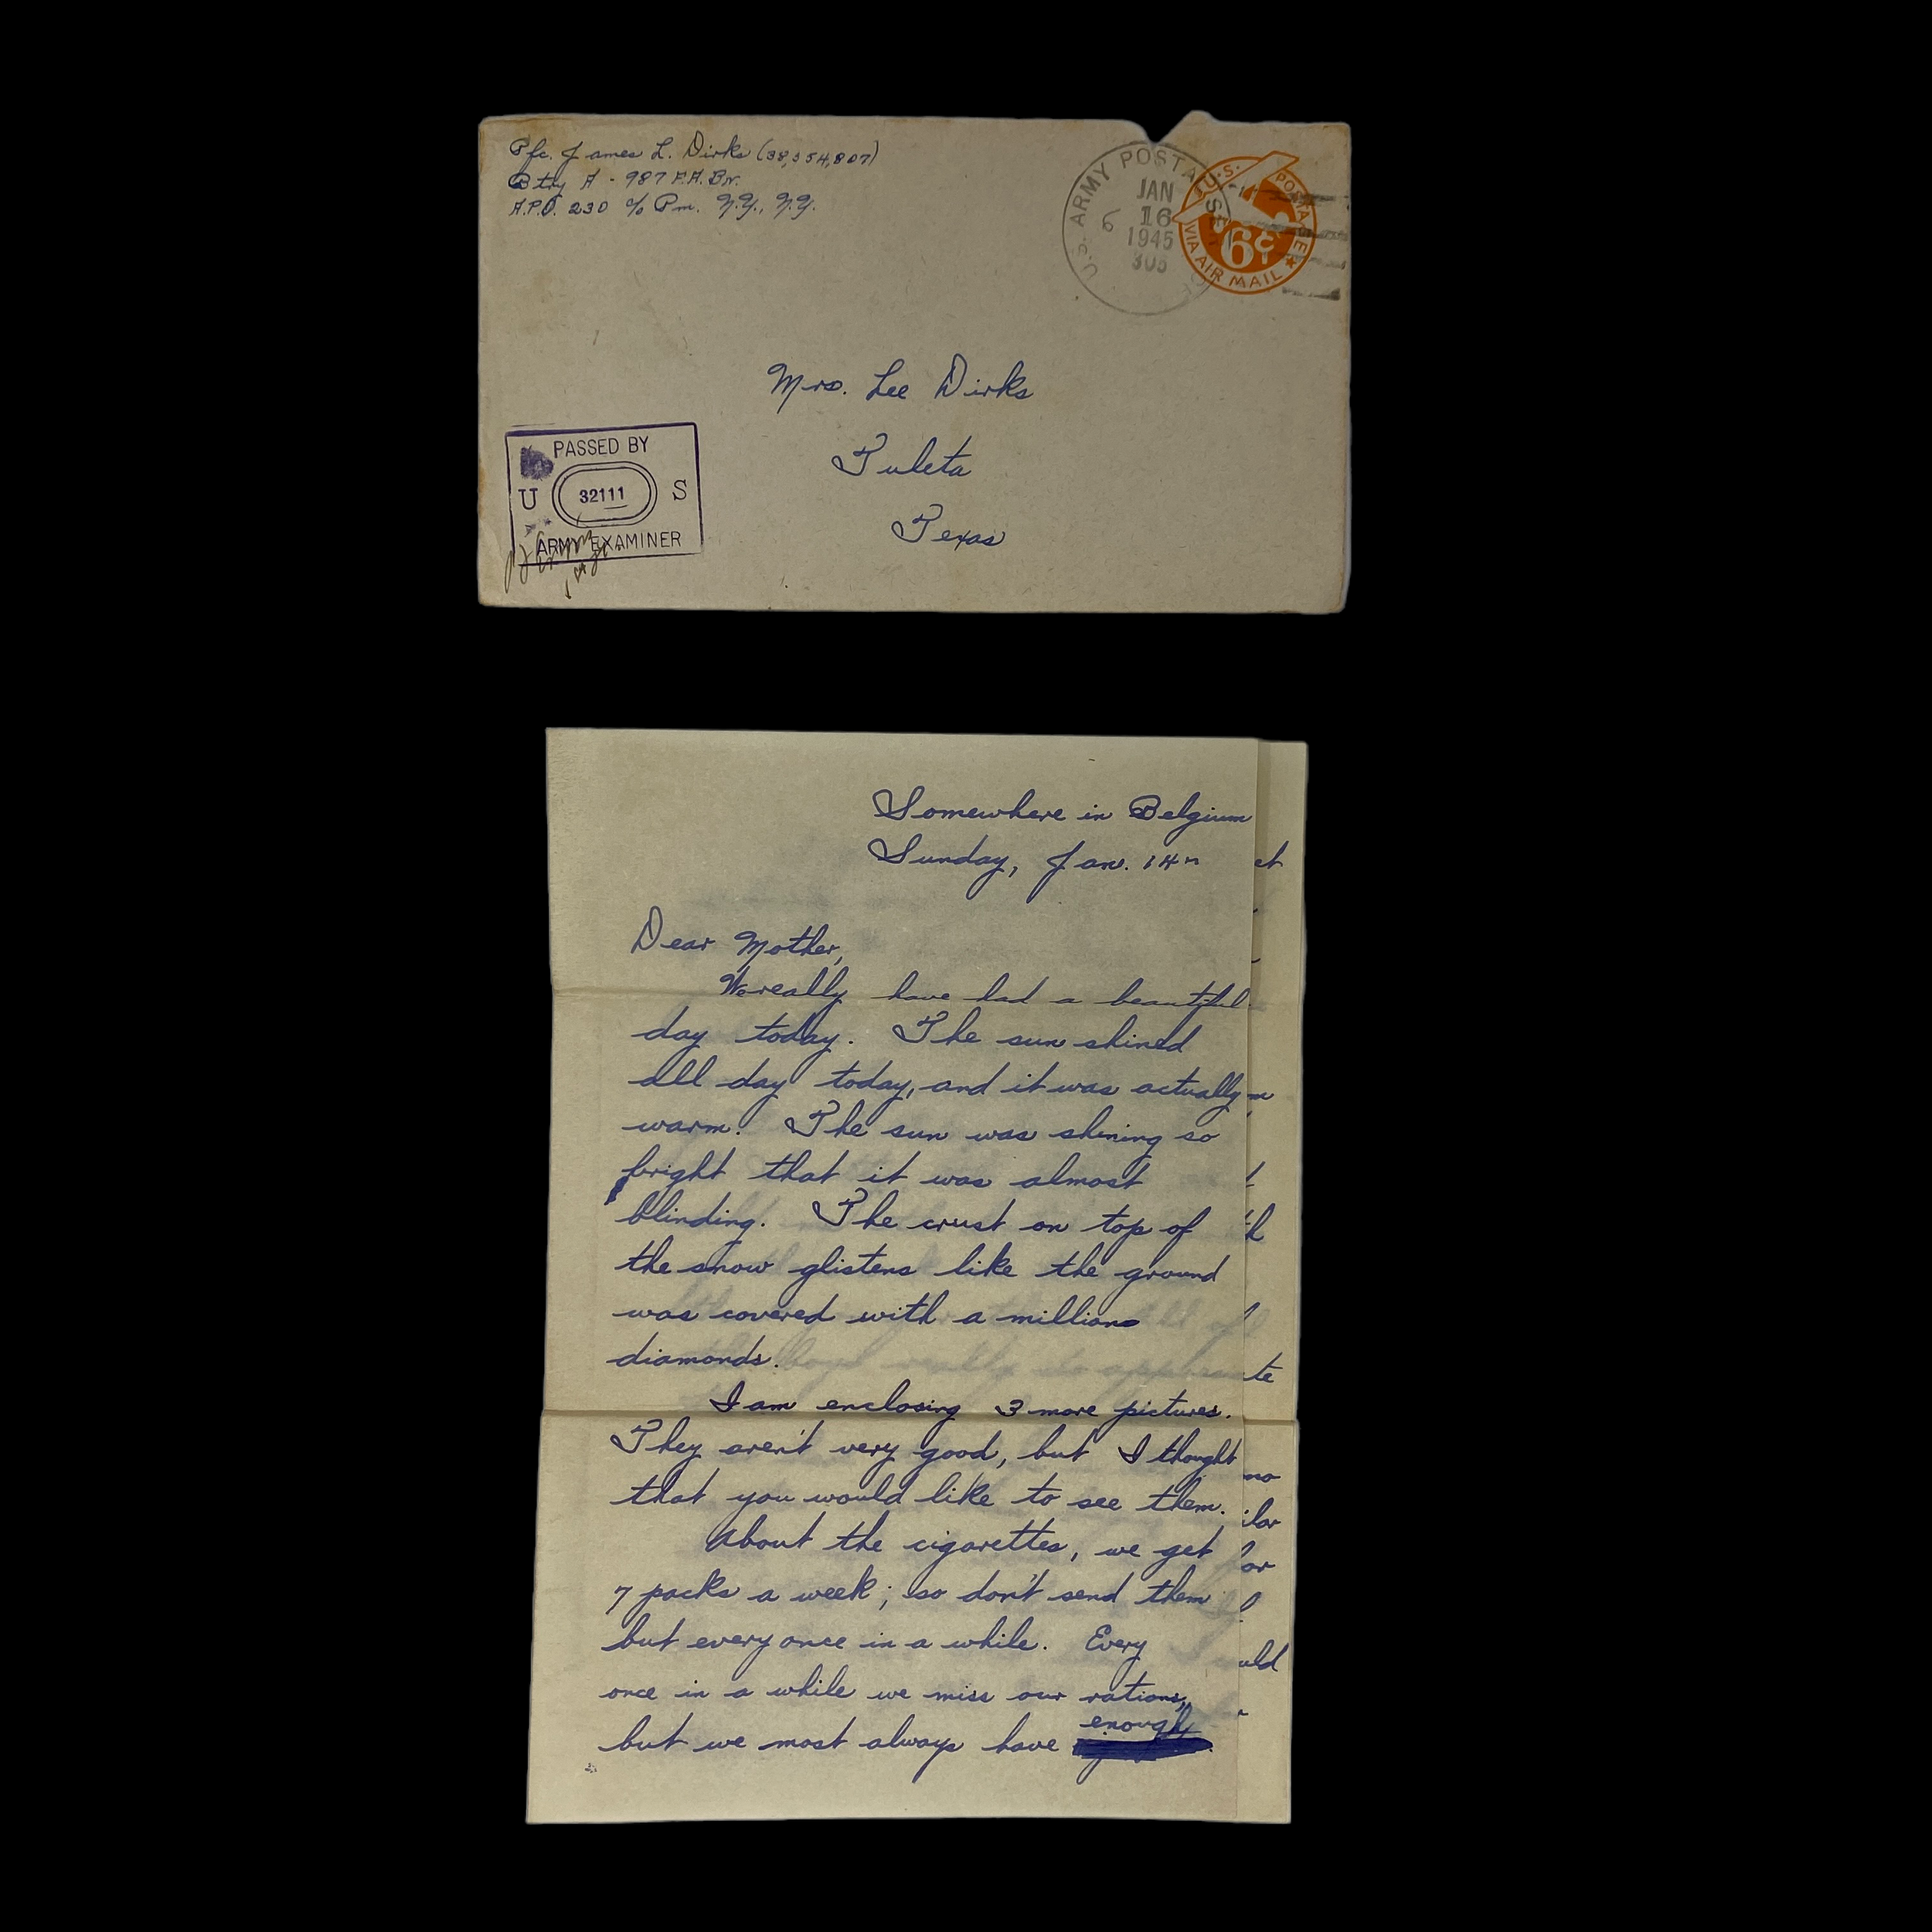 Pfc. James L. Dirks (38,554,807)
Btry A - 987 F.A. Bn.
A.P.O. 230 c/o Pm. N.Y., N.Y.
U.S. ARMY POSTAL
JAN
16
1945
U.S. POSTAGE
6¢
VIA AIR MAIL
Mrs. Lee Dirks
Tuleta
Texas
PASSED BY
U 32111 S
ARMY EXAMINER
Somewhere in Belgium
Sunday, Jan. 14th
Dear Mother,
We really have had a beautiful
day today. The sun shined
all day today, and it was actually
warm. The sun was shining so
bright that it was almost
blinding. The crust on top of
the snow glistens like the ground
was covered with a million
diamonds.
I am enclosing 3 more pictures.
They aren't very good, but I thought
that you would like to see them.
About the cigarettes, we get
7 packs a week; so don't send them
but every once in a while. Every
once in a while we miss our rations,
but we most always have enough